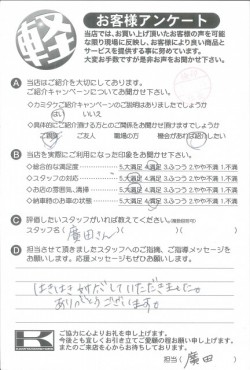 軽
お客様アンケート
当店では、お買い上げ頂いたお客様の声を可能な
限り現場に反映し、お客様により良い商品と
サービスを提供する事に努めています。
大変お手数ですが是非お声をお聞かせ下さい。
A 当店はご紹介を大切にしております。
ご紹介キャンペーンについてお聞かせ下さい。
・カミタケご紹介キャンペーンのご説明はありましたでしょうか
はい いいえ
・具体的にご紹介頂ける方とのご関係をお聞かせ頂けますでしょうか
ご親戚 ご友人 職場の方 機会があれば紹介したい
B 当店を実際にご利用になった印象をお聞かせ下さい。
・総合的な満足度 5.大満足 4.満足 3.ふつう 2.やや不満 1.不満
・スタッフの対応 5.大満足 4.満足 3.ふつう 2.やや不満 1.不満
・お店の雰囲気、清掃 5.大満足 4.満足 3.ふつう 2.やや不満 1.不満
・納車時のお車の状態 5.大満足 4.満足 3.ふつう 2.やや不満 1.不満
C 評価したいスタッフがいれば教えてください。
スタッフ名( 廣田さん )
D 担当させて頂きましたスタッフへのご指摘、ご指導メッセージを
お願いします。応援メッセージもぜひお願いします。
はきはき対応していただきました。
ありがとうございます。
K
ご協力に心よりお礼を申し上げます。
今後とも宜しくお引き立てご愛顧の程お願い申し上げます。
またのご来店を心からお待ちしております。
担当( 廣田 )